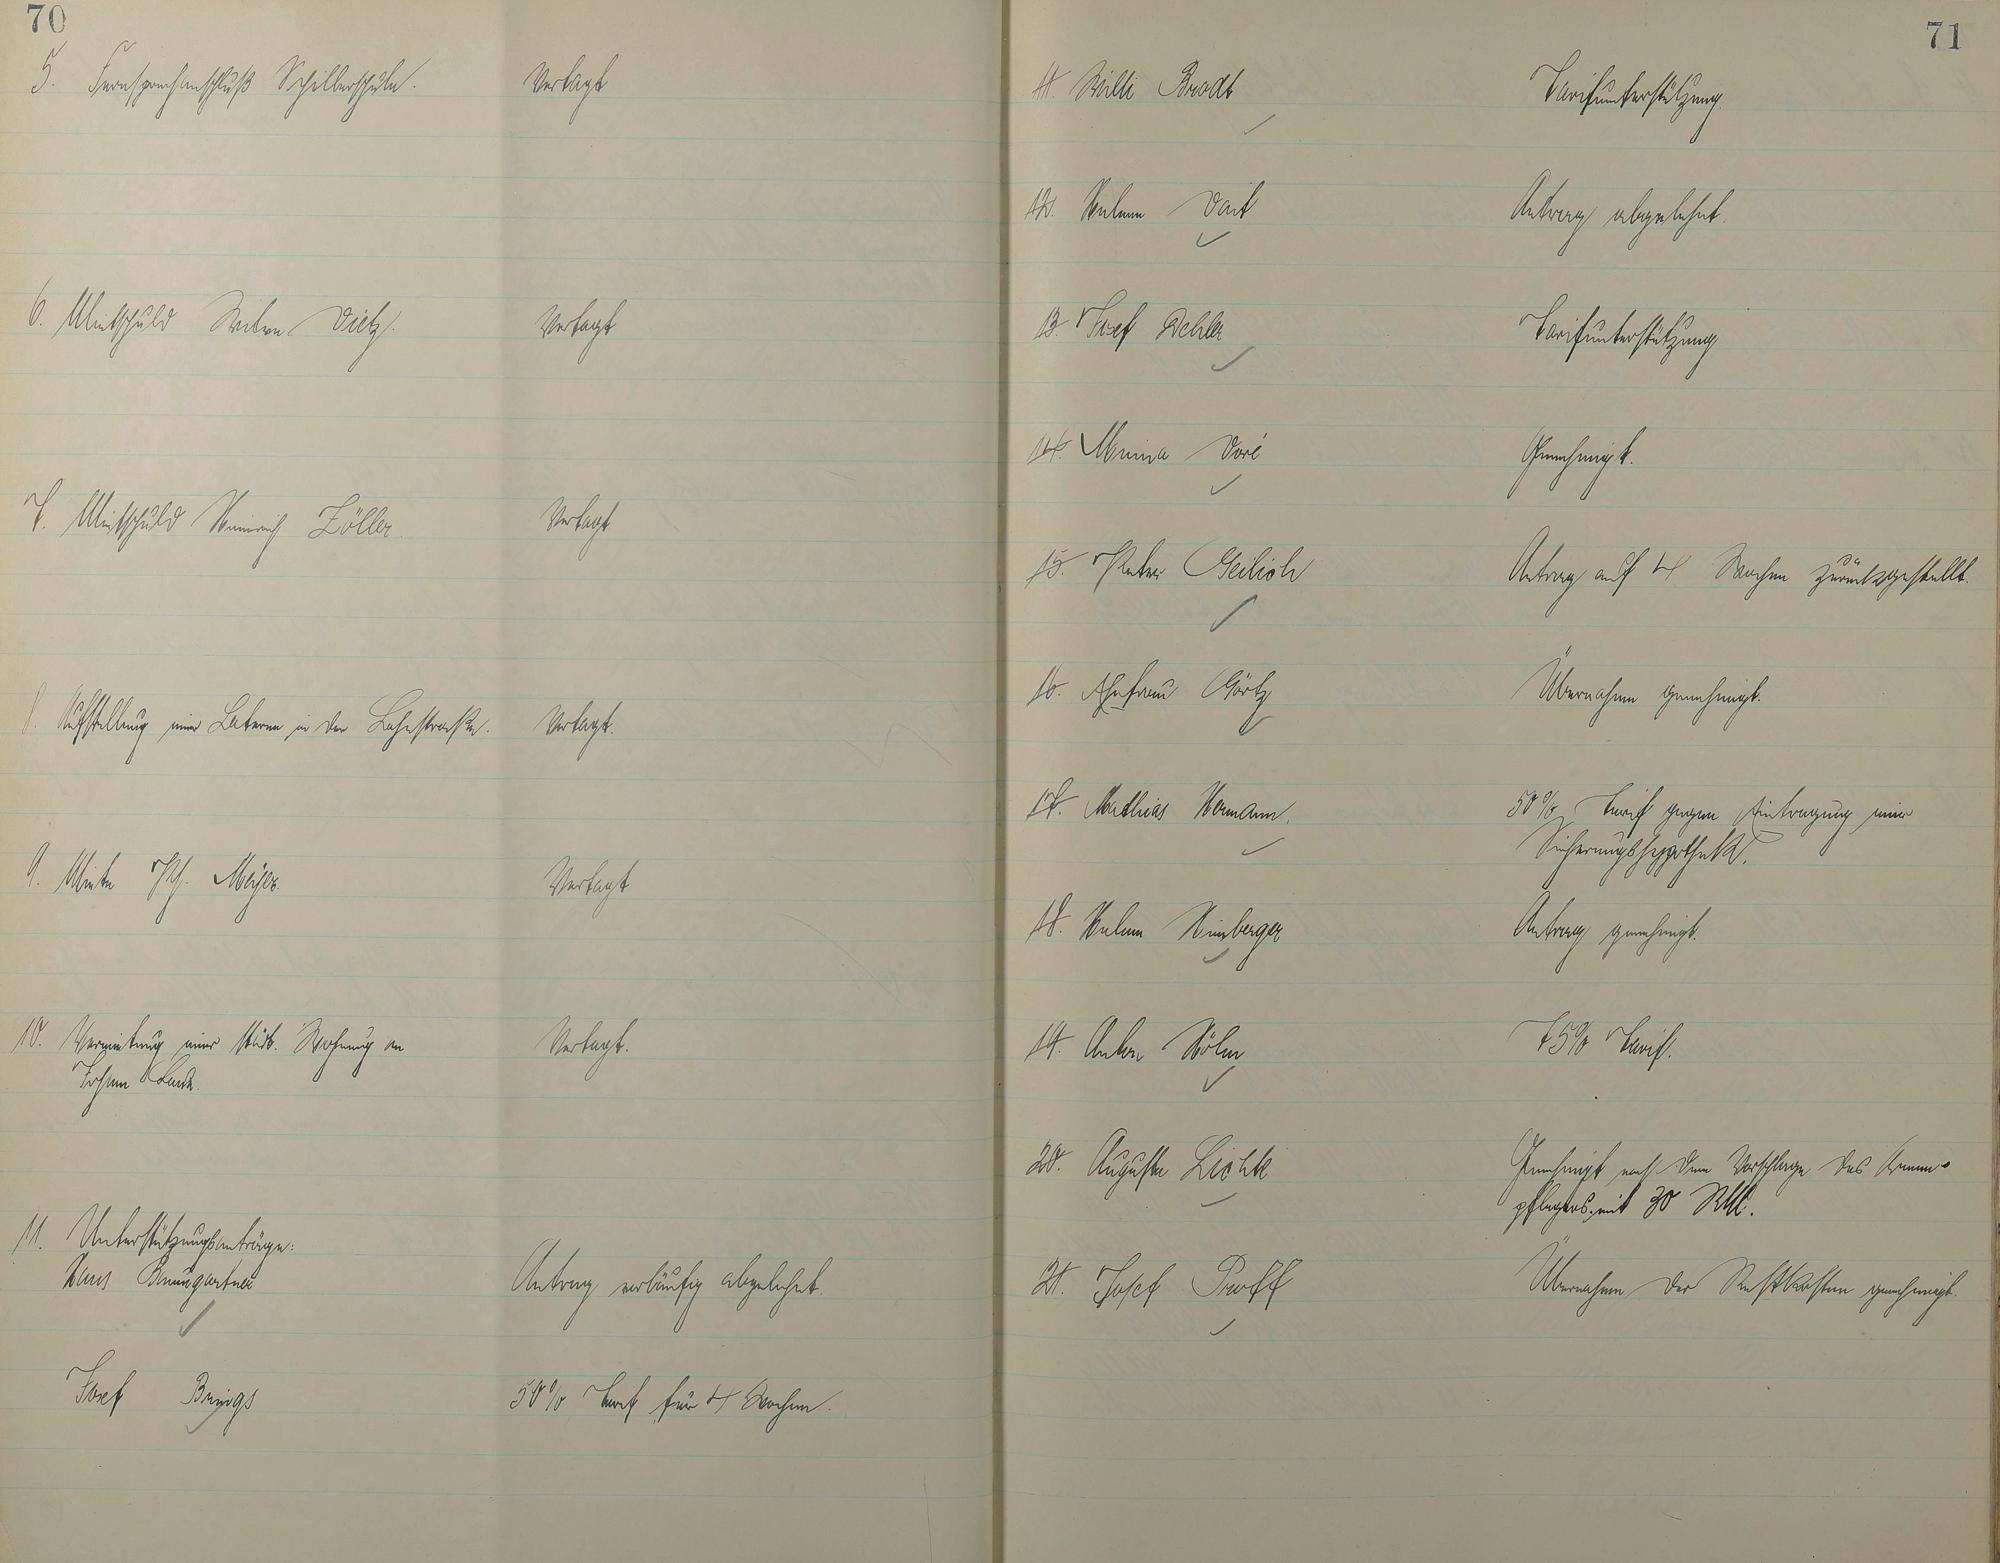 70
5. Fernsprechanschluß Schillerschule. Vertagt
6. Mietschuld Witwe Dietz. Vertagt
7. Mietschuld Heinrich Zöller. Vertagt
8. Aufstellung einer Laterne in der Lahnstraße. Vertagt.
9. Miete Ph. Meijer. Vertagt
10. Vermietung einer städt. Wohnung an Vertagt.
Johann
11. Unterstützungsanträge:
Hans Baumgartner Antrag vorläufig abgelehnt.
Josef Brings 50% Tarif für 4 Wochen.
71
11. Willi Brodt Tarifunterstützung
12. Helene Voit Antrag abgelehnt.
13. Josef Dehler Tarifunterstützung
14. Minna Doré Genehmigt.
15. Peter Geilich Antrag auf 4 Wochen zurückgestellt.
16. Ehefrau Görtz Übernahme genehmigt.
17. Mathias Hermann. 50% Tarif gegen Eintragung einer
Sicherungshypothek.
18. Helene Himberger Antrag genehmigt.
19. Anton Höhn 75% Tarif.
20. Auguste Lichte Genehmigt nach dem Vorschlage des Armen-
pflegers mit 30 RM.
21. Josef Proff Übernahme der Restkosten genehmigt.